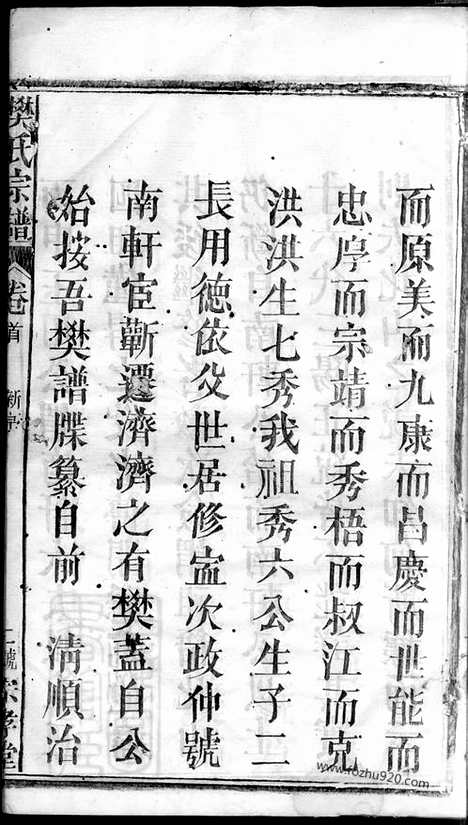 而原美而九康而昌慶而世能而
忠序而宗靖而秀梧而叔江而克
洪洪生七秀我祖秀六公生子二
長用德依父世居修寍次政仲號
南軒宦蘄遷濟濟之有樊蓋自公
始按吾樊譜牒纂自前 清順治
樊氏宗譜 卷首 新序 二號 孝堂
www.fozhu920.com